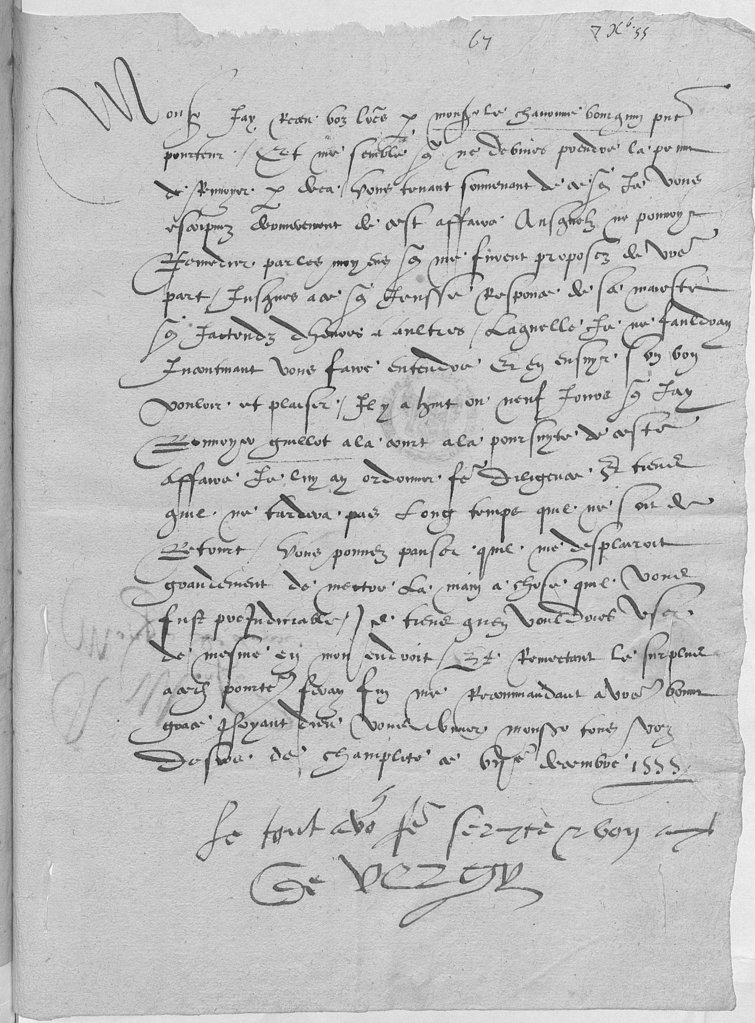 67 7 Xb. 55
Monsr Jay Receu voz lres p monsr le chanonne bourgny pnt
pourteur / Et me semble q ne debvies prendre la peine
de Renvoyer p deca / Vous tenant souvenant de ce q Je vous
escripvez dernierement de cest affaire Ausquelz ne pouvoys
Remedier par les moyens q me furent proposez de vre
part / Jusques a ce q Jeusse Response de sa majeste
q Jactendz dheures a aultres / Laquelle Je ne fauldray
Incontinant vous faire entendre Et en ensuyr son bon
vouloir et plaisir / Il y a huit ou neuf Jours q Jay
Renvoye guillot a la court a la poursuyte de ceste
affaire Je luy ay ordonner fe dilligence Et tiens
quil ne tardera pas long temps quil ne soit de
Retourt / Vous pouvez panser quil me desplairoit
grandement de mectre la main a chose quil vous
fust preJudiciable / Je tiens quen vouldries user
de mesme en mon endroit / Et Remectant le surplus
aud pourteur feray fin me Recommandant a vre bonne
grace priant dieu vous donner monsr tous voz
desirs de champlite ce VIIe decembre 1555
Le tout vre fe et bon amy
De Vergy